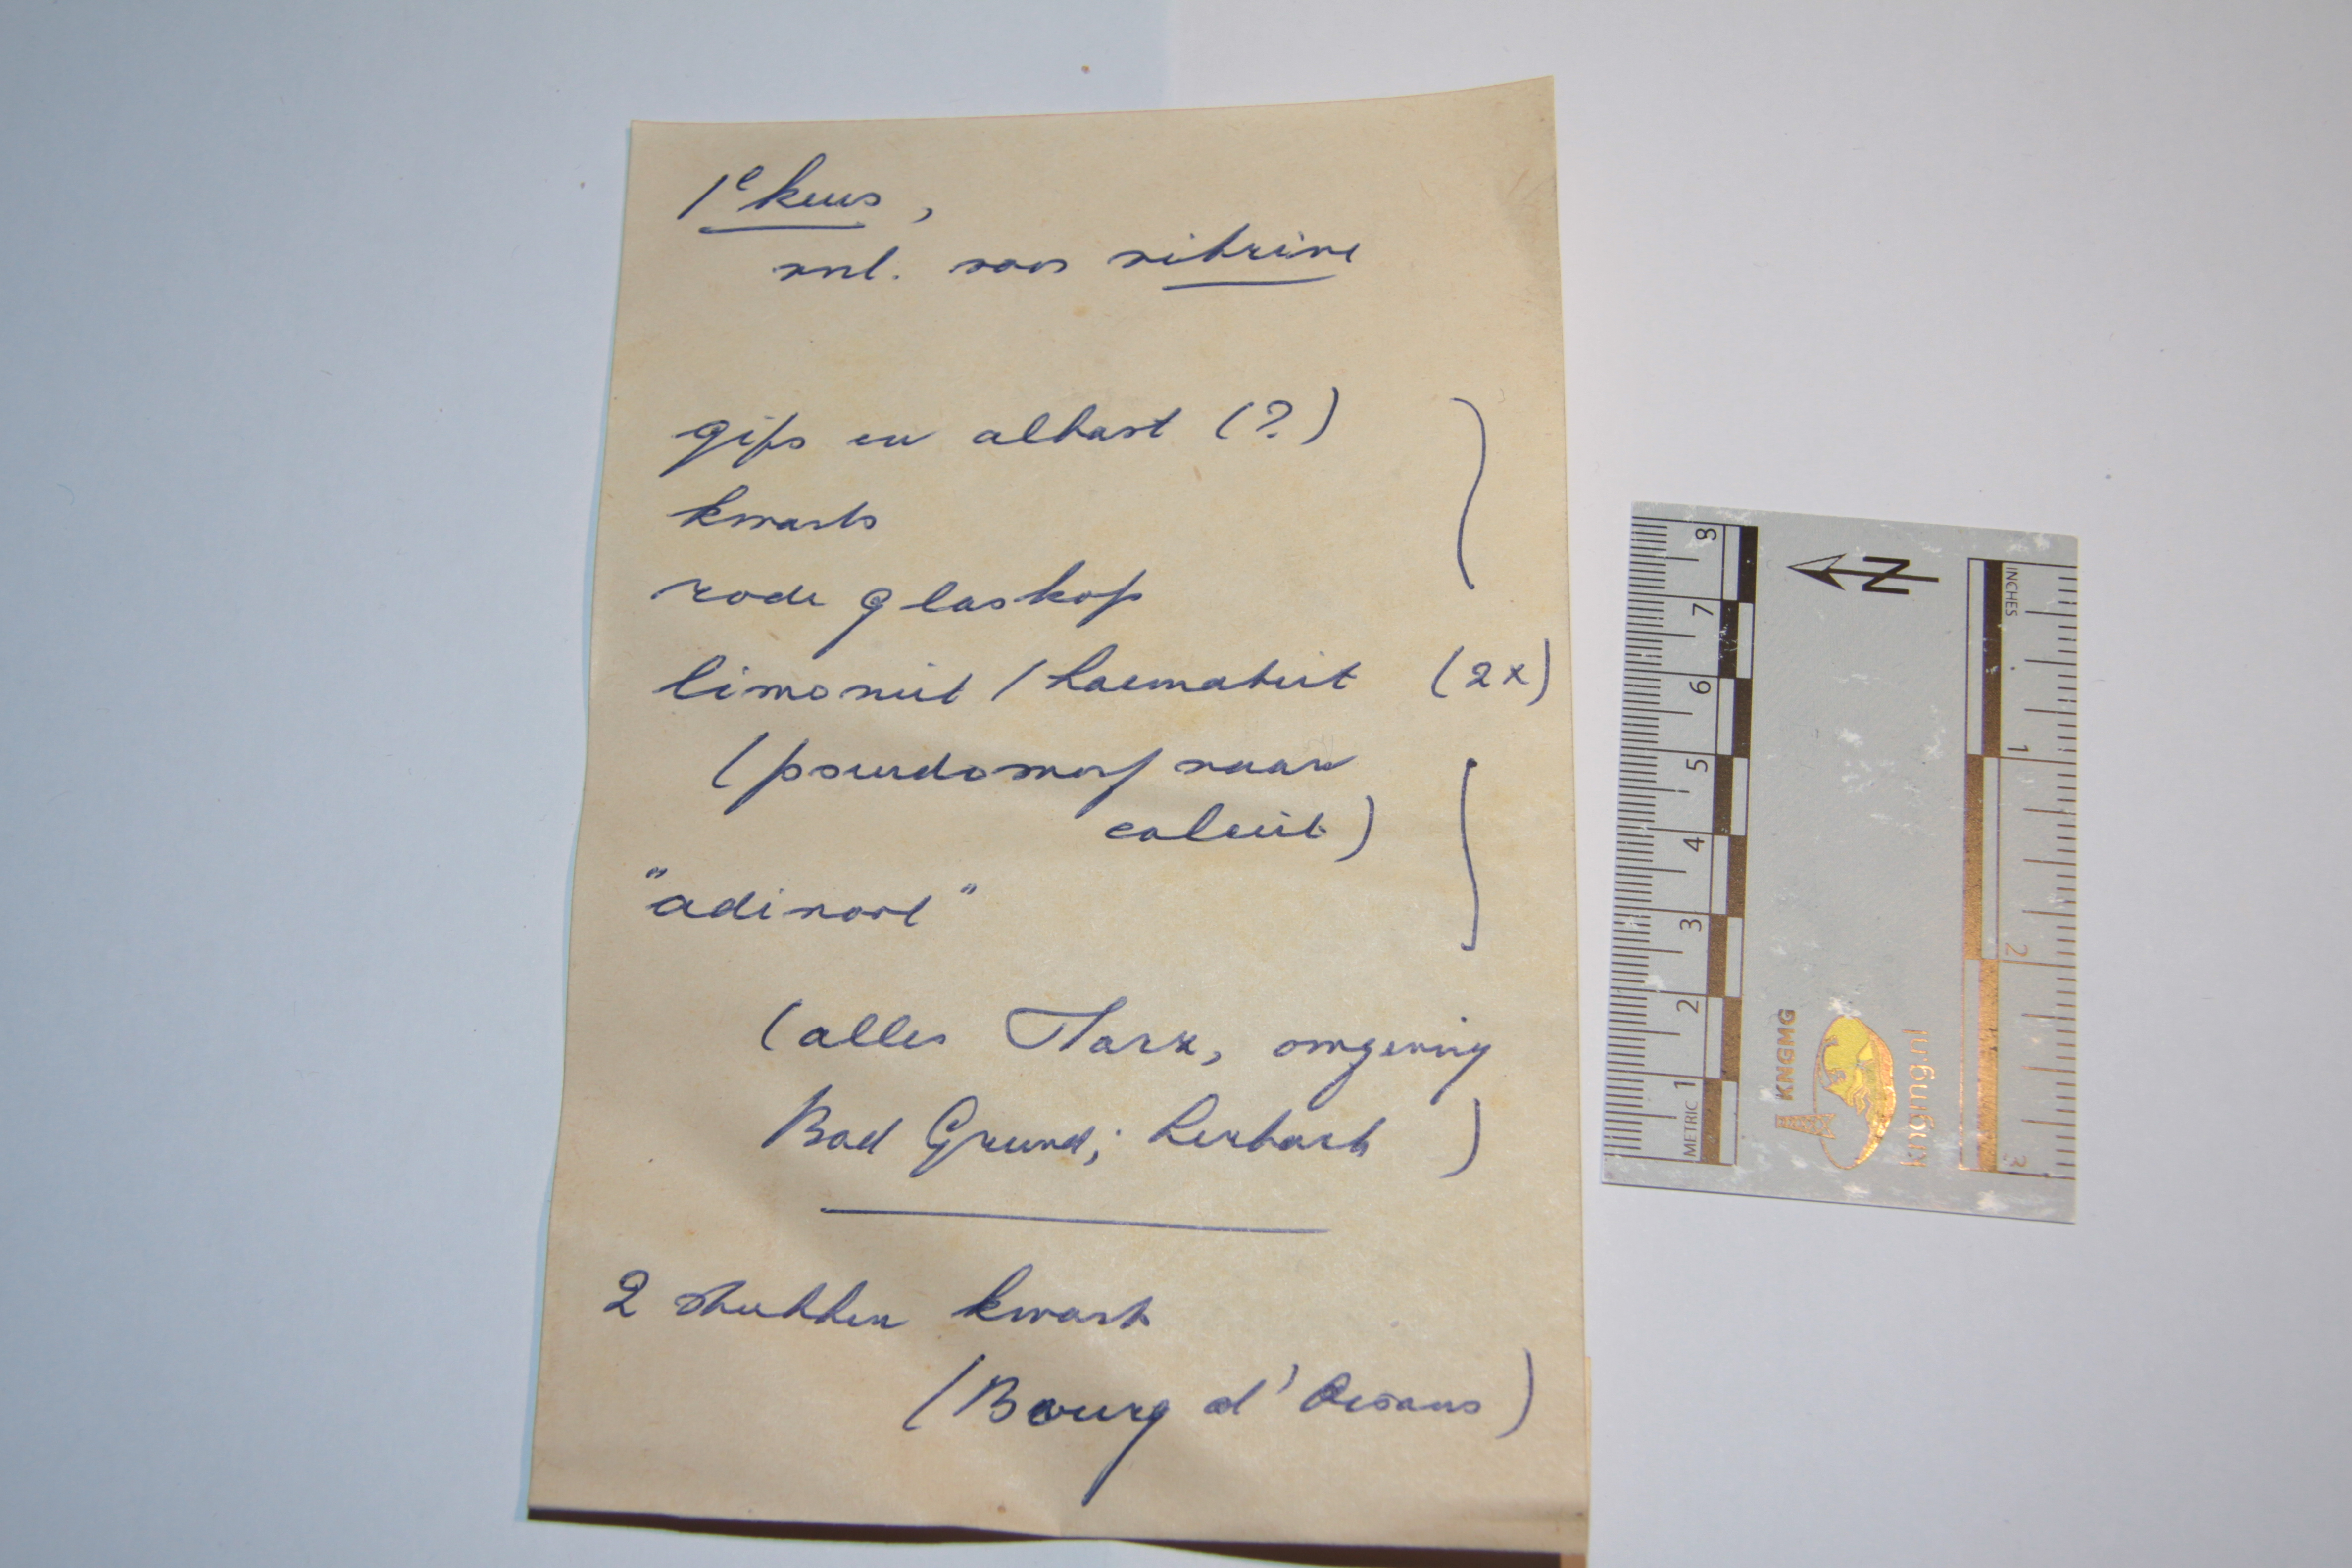 1e keus,
nl. voor vitrine
gips en albast (?)
kwarts
rode glaskop
limoniet / haematiet (2x)
(pseudomorf naar
calciet)
"adinool"
(alles Harz, omgeving
Bad Grund; Lerbach)
2 stukken kwarts
(Bourg d'Oisans)
8
7
6
5
4
3
2
METRIC 1
N
KNGMG
kngmg.nl
INCHES
1
2
3